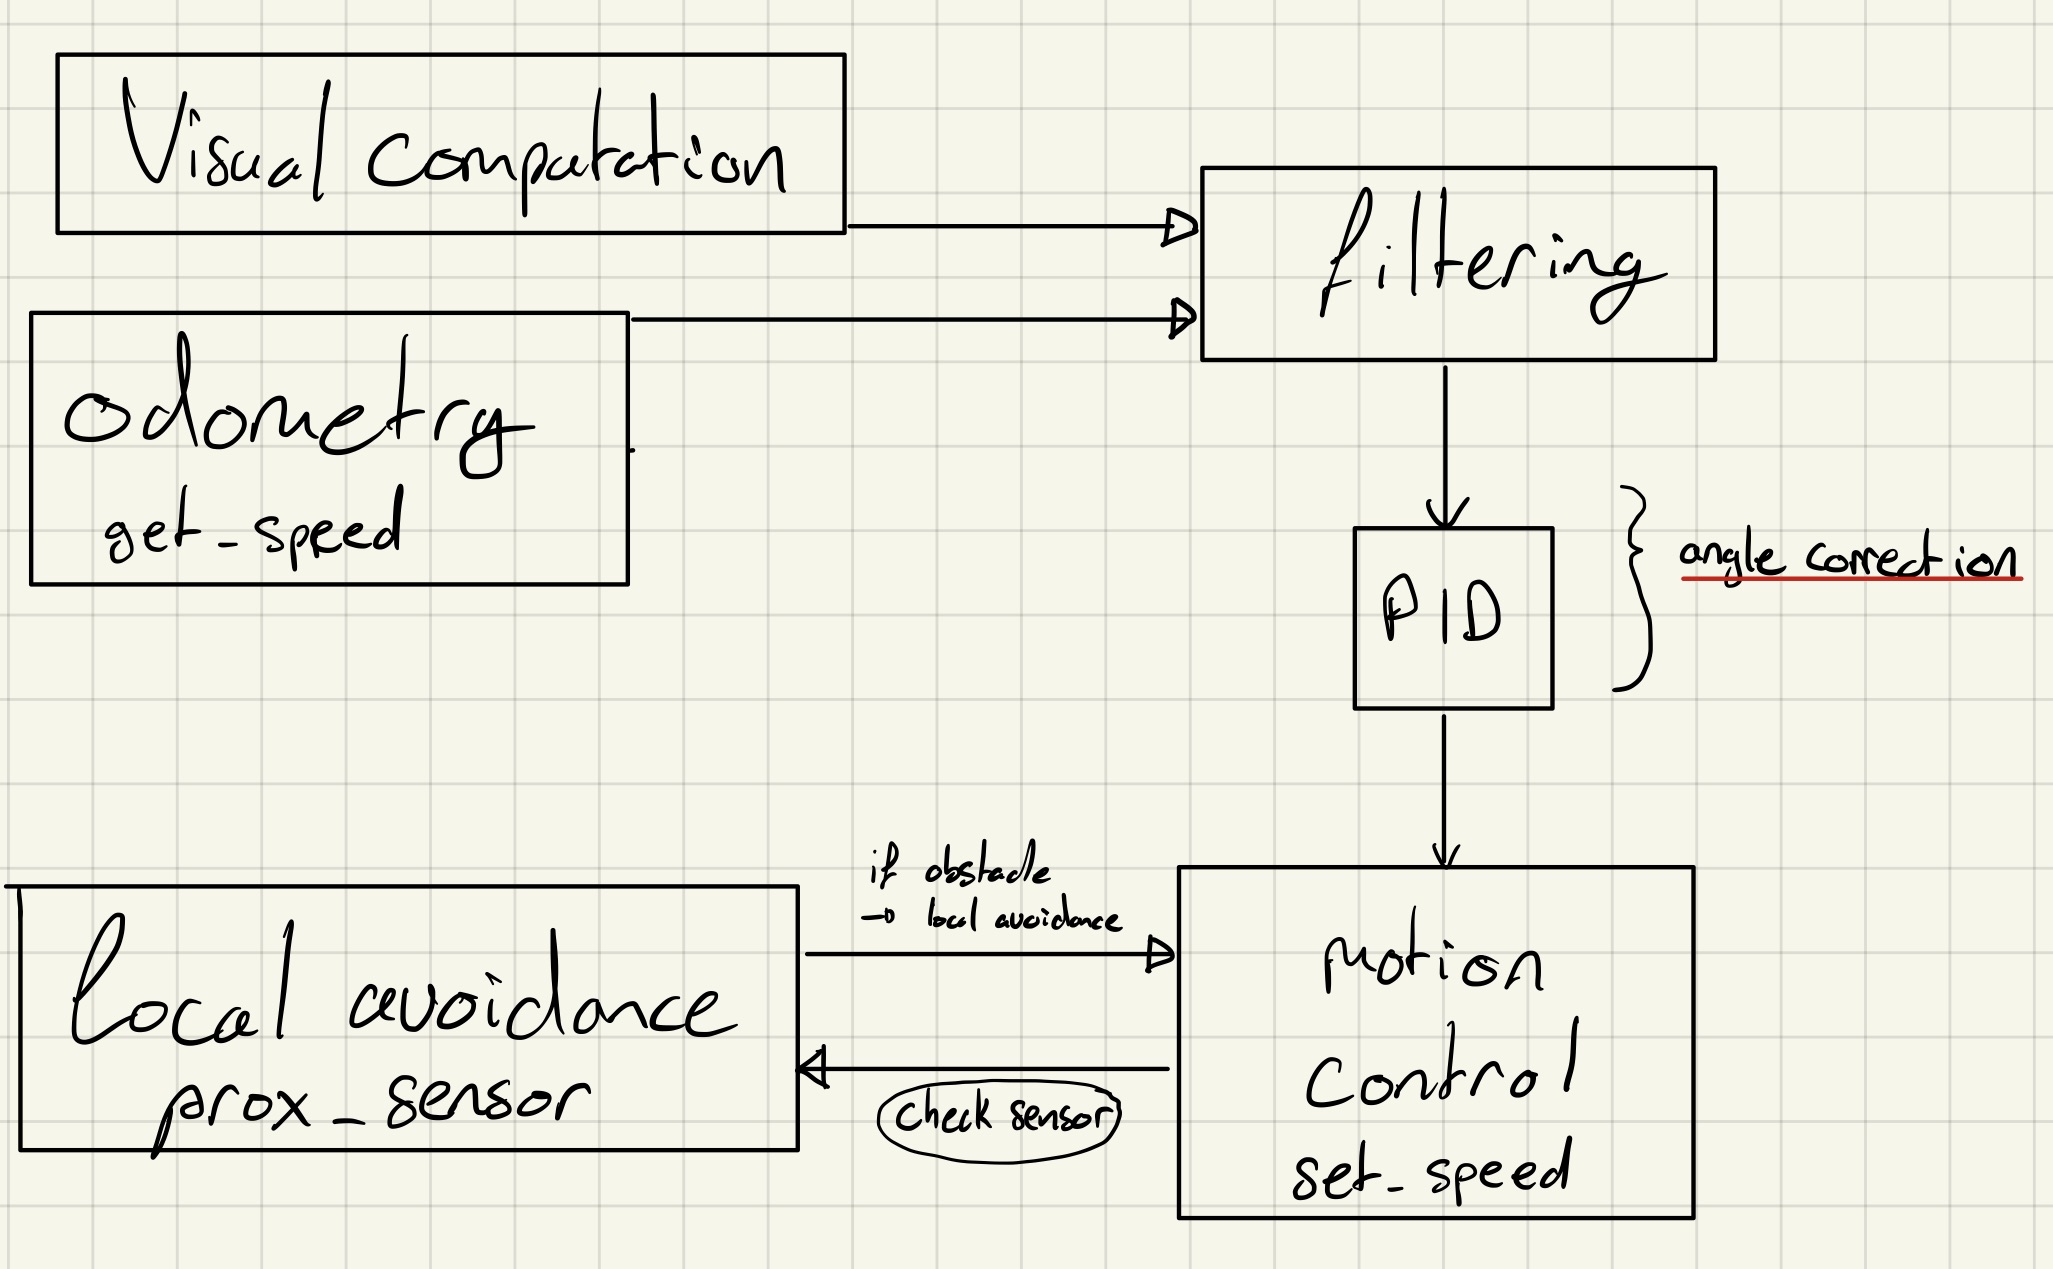 Visual Computation
filtering
Odometry
get_speed
PID
angle correction
if obstacle
→ local avoidance
local avoidance
prox_sensor
check sensor
Motion
Control
set_speed